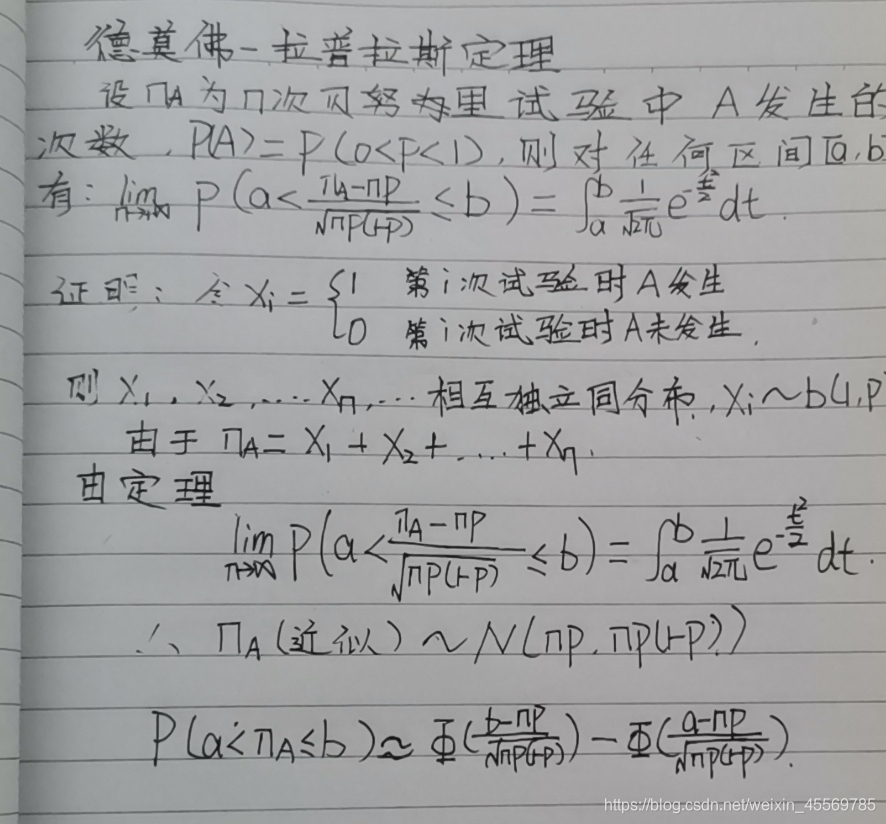 德莫佛-拉普拉斯定理
设 n_A 为 n次贝努里试验中 A发生的
次数, P(A)=P(0<P<1), 则对任何区间[a,b
有: lim_{n→∞} P(a< (n_A-nP)/√(nP(1-P)) ≤b)=∫_a^b 1/√(2π) e^{-t²/2} dt.
证明: 令 X_i = { 1 第i次试验时A发生
0 第i次试验时A未发生.
则 X_1, X_2, .... X_n, ... 相互独立同分布, X_i ~ b(1,P
由于 n_A = X_1 + X_2 + .... + X_n.
由定理
lim_{n→∞} P(a< (n_A-nP)/√(nP(1-P)) ≤b)=∫_a^b 1/√(2π) e^{-t²/2} dt.
∴ n_A(近似) ~ N(nP, nP(1-P))
P(a<n_A≤b)≈Φ((b-nP)/√(nP(1-P)))-Φ((a-nP)/√(nP(1-P))).
https://blog.csdn.net/weixin_45569785